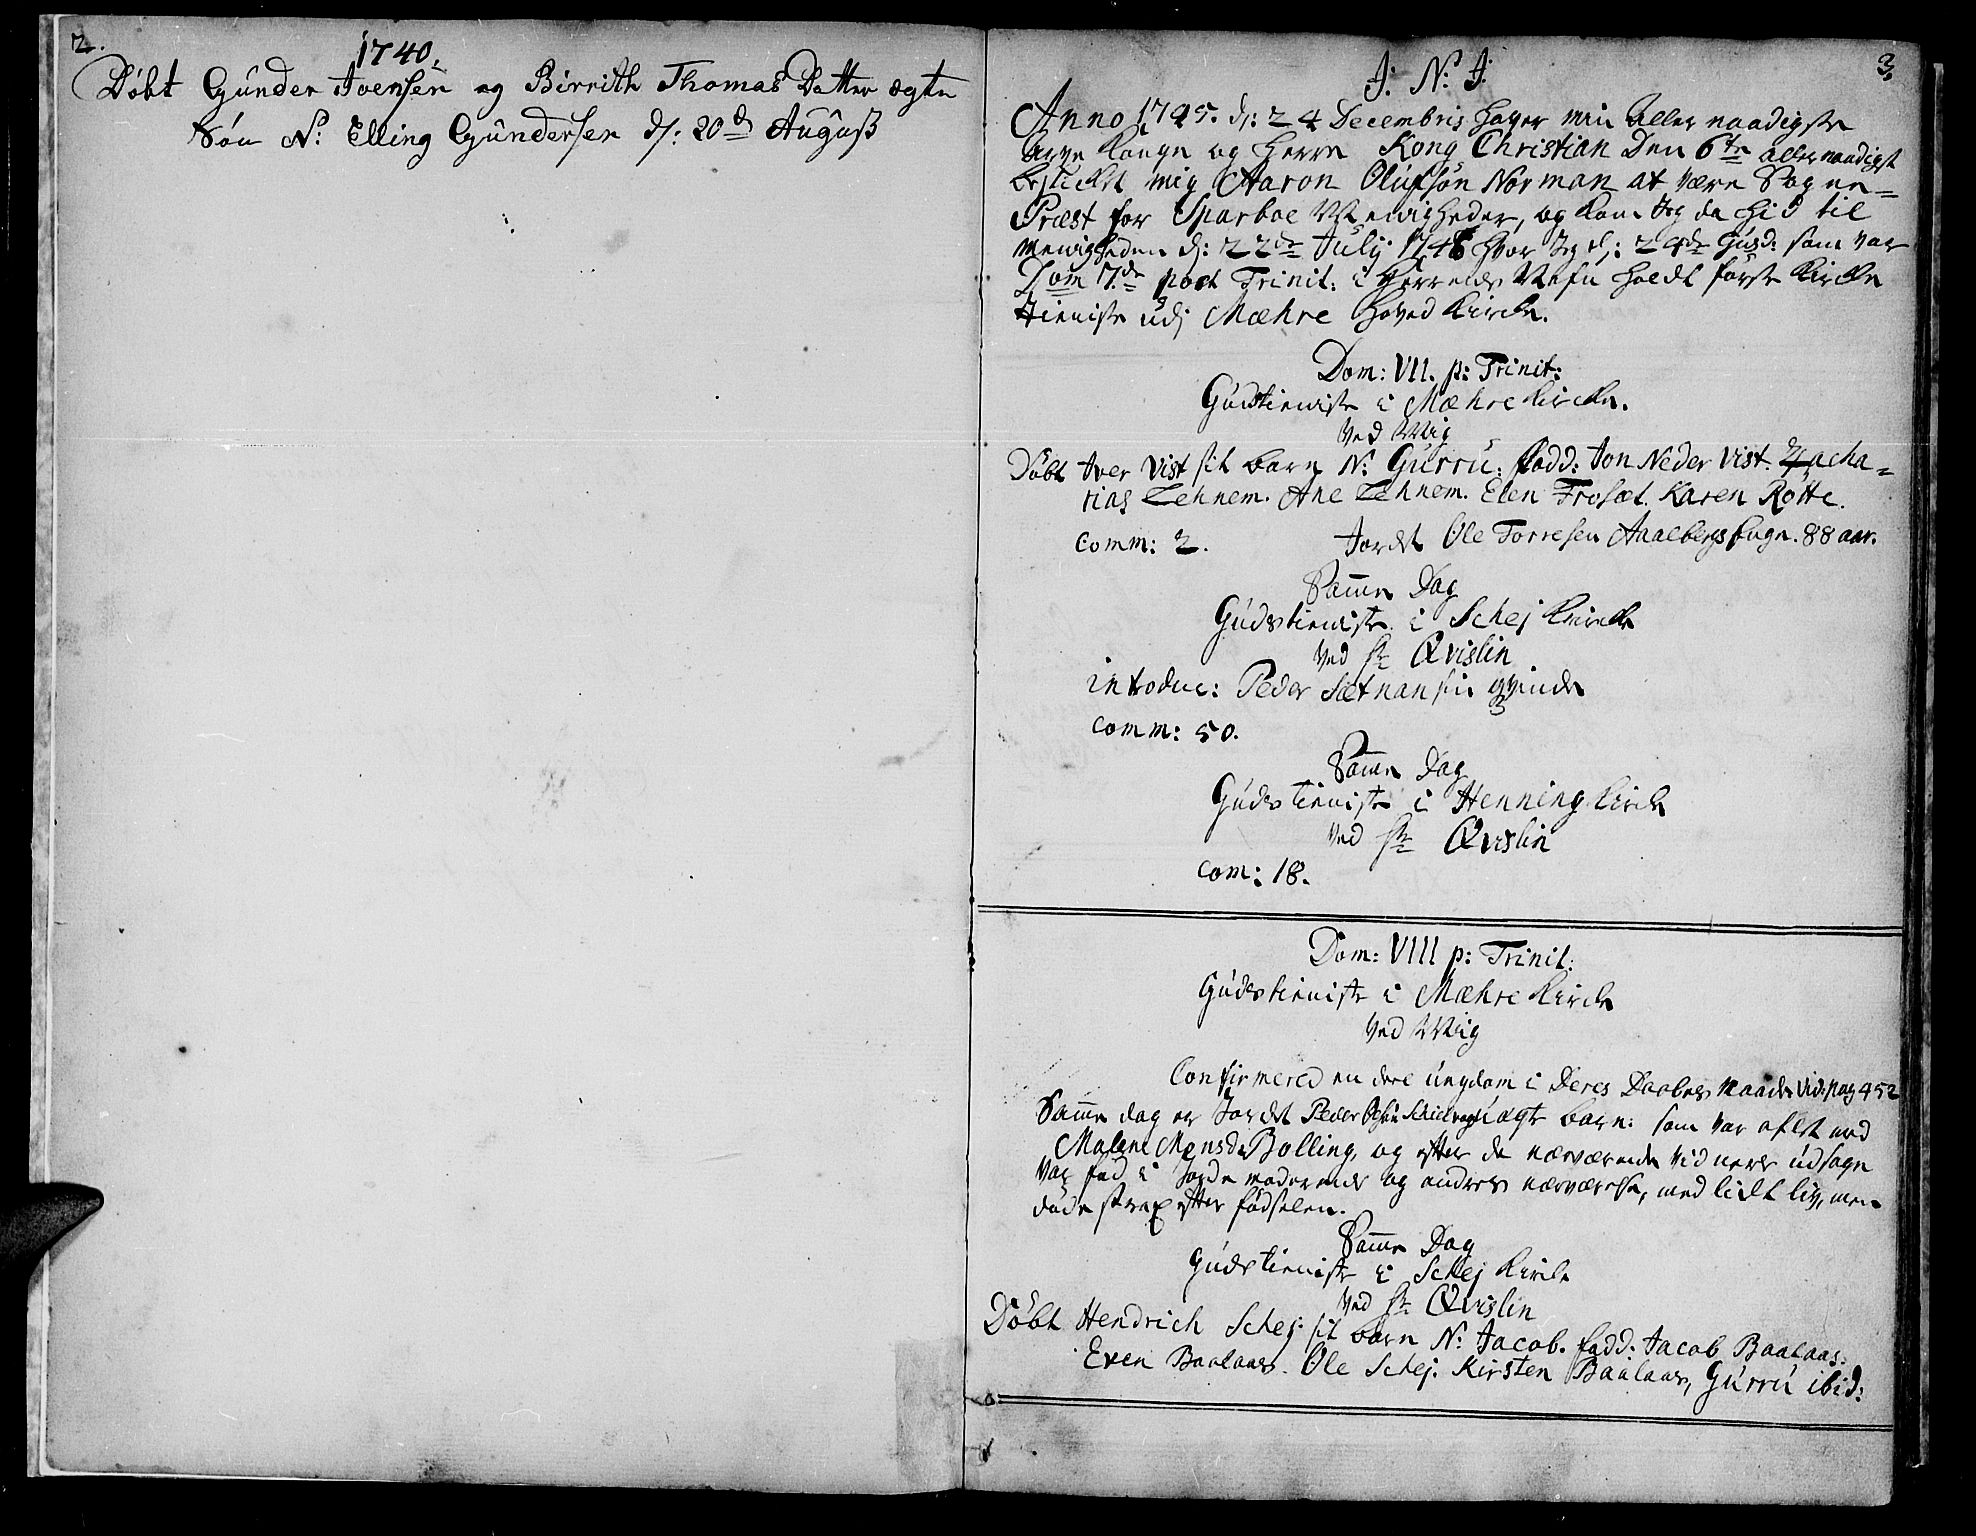 2.
1740.
Döbt Gunder Ivensen og Birrith Thomas Datter ægte
Sön N: Elling Gundersen d: 20d August
3.
J: N: J:
Anno 1745. d: 24 Decembris haver min Aller naadigste
Arve Konge og Herre Kong Christian Den 6te allernaadigst
beskicket mig Aaron Olufsön Norman at være Sogne-
Præst for Sparboe Menigheder, og kom Jeg da hid til
Menigheden d: 22de July 1746 hvor Jeg d: 24de Ejusd: som var
Dom 7de post Trinit: i Herrens Nafn holdt förste Kirke
tieniste udj Mæhre Hoved Kirke.
Dom: VII. p: Trinit:
Gudstieniste i Mæhre Kirke.
Ved Mig
Döbt Iver Vist sit barn N: Gurru. fadd: Jon Neder Vist. Zacha-
rias Lehnem. Ane Lehnem. Elen Trosæt. Karen Rötte.
Comm: 2. Jordet Ole Torresen Aaalbergs 88 aar.
Samme Dag
Gudstieniste i Schej Kirke
Ved Hr Qvislin
introduc: Peder Sætnan sin qvinde
Comm: 50.
Samme Dag
Gudstieniste i Henning Kirke
Ved Hr Qvislin
Com: 18.
Dom: VIII p: Trinit:
Gudstieniste i Mæhre Kirke
Ved Mig
Confirmered en deel ungdom i Deres Daabes Naade Vid: pag 452
Samme dag er Jordet Peder Olsen uægte barn: som var aflet med
Malene Monsd. Bolling, og efter de nærværende Vidners udsagn
var fød i moderens og andres nærværelse, med lidt liv, men
døde strax efter födselen.
Samme Dag
Gudstieniste i Schej Kirke
Ved Hr Qvislin
Döbt Hendrich Schej sit barn N: Jacob. fadd: Jacob Baalaas.
Even Baalaas. Ole Schej. Kirsten Baalaas, Gurru ibid: